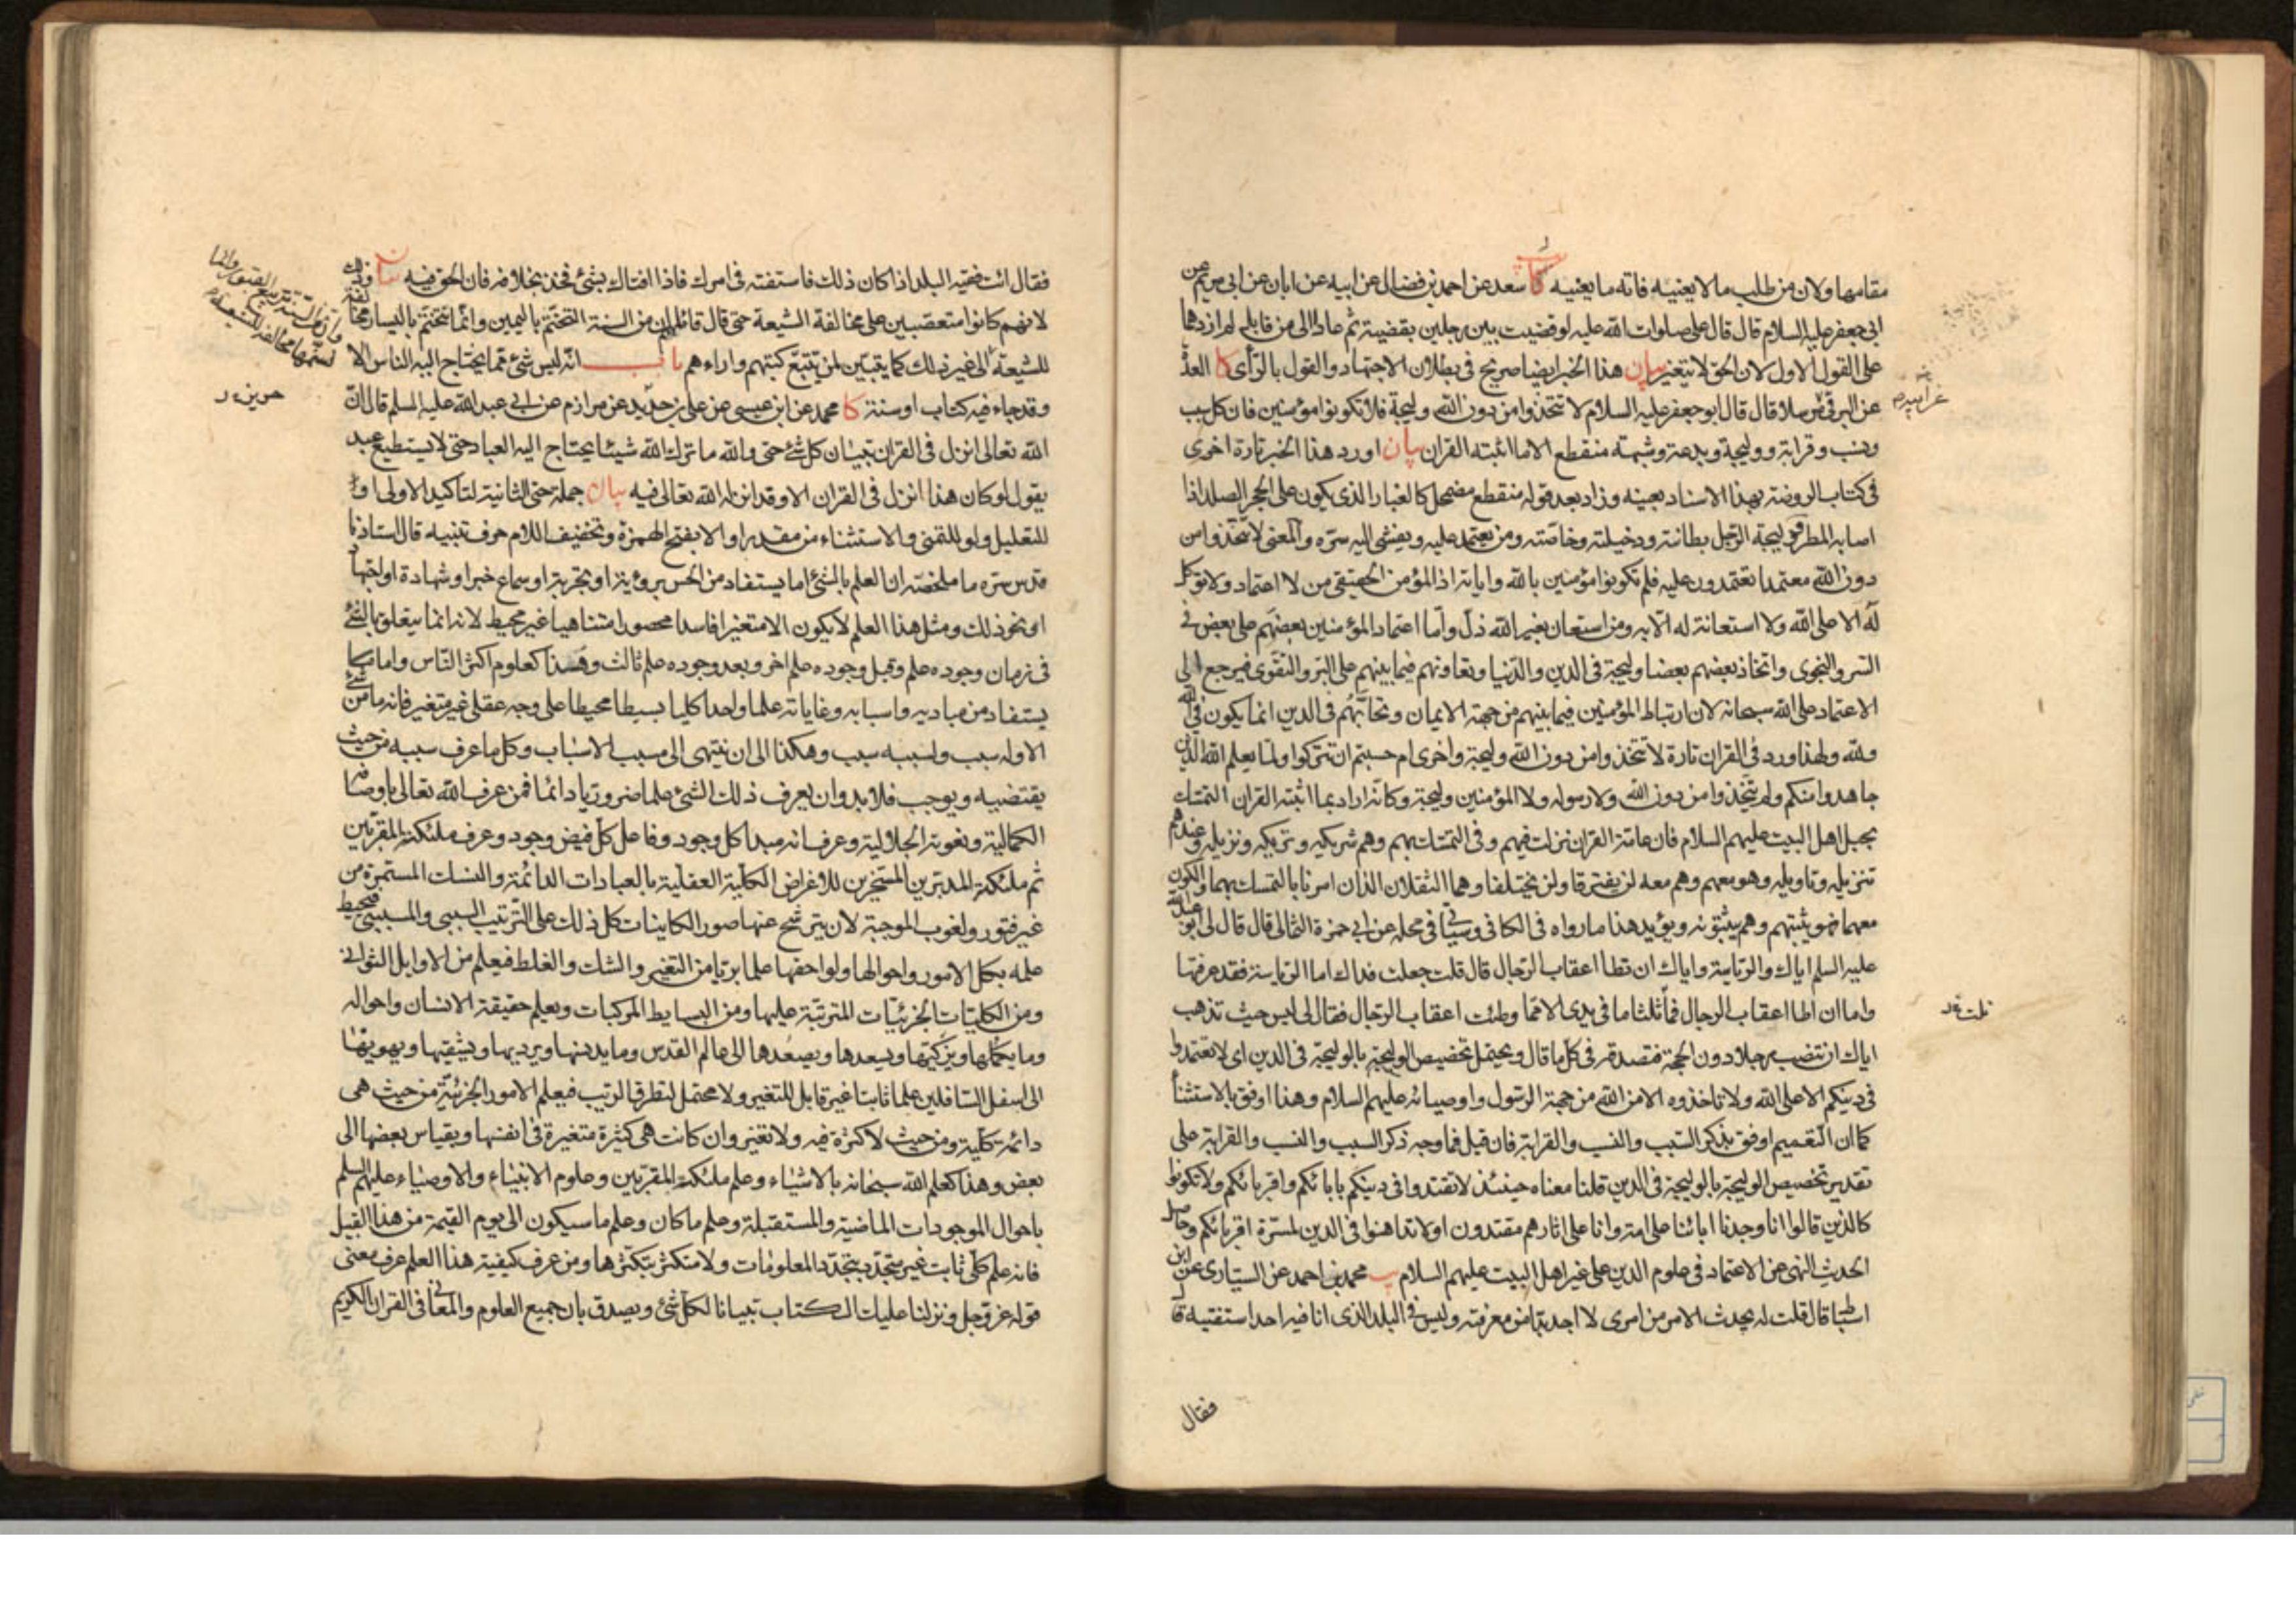 مقامها ولان من طلب ما لا يعنيه فاته ما يعنيه يب سعد عن احمد بن فضال عن ابيه عن ابان عن ابى مريم عن
ابى جعفر عليه السلام قال قال على صلوات الله عليه لو قضيت بين رجلين بقضية ثم عادا الى من قابل لم ازدهما
على القول الاول لان الحق لا يتغير بيان هذا الخبر ايضا صريح فى بطلان الاجتهاد والقول بالرأى كا العدّة
عن البرقى مرسلا قال قال ابو جعفر عليه السلام لا تتخذوا من دون الله وليجة فلا تكونوا مؤمنين فان كل سبب
ونسب وقرابة ووليجة وبدعة وشبهة منقطع الا ما اثبته القران بيان اورد هذا الخبر تارة اخرى
فى كتاب الروضة بهذا الاسناد بعينه وزاد بعد قوله منقطع مضمحل كالغبار الذى يكون على الحجر الصلد اذا
اصابه المطر وليجة الرجل بطانته ودخيلته وخاصته ومن يعتمد عليه ويفشى اليه سرّه والمعنى لا تتخذوا من
دون الله معتمدا تعتمدون عليه فلم تكونوا مؤمنين بالله واياته اذ المؤمن الحقيقى من لا اعتماد ولا توكل
له الا على الله ولا استعانة له الّا به ومن استعان بغير الله ذلّ وامّا اعتماد المؤمنين بعضهم على بعض فى
السر والنجوى واتخاذ بعضهم بعضا وليجة فى الدين والدّنيا وتعاونهم فيما بينهم على البرّ والتقوى فيرجع الى
الاعتماد على الله سبحانه لان ارتباط المؤمنين فيما بينهم من جهة الايمان وتحابّهم فى الدين انما يكون فى الله
ولله ولهذا ورد فى القران تارة لا تتخذوا من دون الله وليجة واخرى ام حسبتم ان تتركوا ولمّا يعلم الله الذين
جاهدوا منكم ولم يتّخذوا من دون الله ولا رسوله ولا المؤمنين وليجة وكانّه اراد بما اثبته القران التمسّك
بحبل اهل البيت عليهم السلام فان عامة القران نزلت فيهم وفى التمسّك بهم وهم شريكه وتريكه ونزيله وعندهم
تنزيله وتاويله وهو معهم وهم معه لن يفترقا ولن يختلفا وهما الثقلان الذان امرنا بالتمسك بهما والكون
معهما فهو يثبتهم وهم يثبتونه ويؤيد هذا ما رواه فى الكافى وسيأتى فى محله عن ابى حمزة الثمالى قال قال لى ابو عبد الله
عليه السلم اياك والرّياسة واياك ان تطا اعقاب الرّجال قال قلت جعلت فداك اما الرّياسة فقد عرفتها
واما ان اطا اعقاب الرجال فما ثلثا ما فى يدى الا ممّا وطئت اعقاب الرّجال فقال لى ليس حيث تذهب
اياك ان تنصب رجلا دون الحجة فتصدقه فى كلّ ما قال ويحتمل تخصيص الوليجة بالوليجة فى الدين اى لا تعتمدوا
فى دينكم الا على الله ولا تاخذوه الا من الله من جهة الرّسول واوصيائه عليهم السلام وهذا اوفق بالاستثنا
كما ان التّعميم اوفق بذكر السّبب والنسب والقرابة فان قيل فما وجه ذكر السبب والنسب والقرابة على
تقدير تخصيص الوليجة بالوليجة فى الدين قلنا معناه حينئذ لا تقتدوا فى دينكم بابائكم واقربائكم ولا تكونوا
كالذين قالوا انا وجدنا ابائنا على امة وانا على اثارهم مقتدون او لا تداهنوا فى الدين لمسرّة اقربائكم وحاصل
الحديث النهى عن الاعتماد فى علوم الدين على غير اهل البيت عليهم السلام يب محمد بن احمد عن السيّارى عن ابن
اسباط قال قلت له يحدث الامر من امرى لا اجد بدّا من معرفته وليس فى البلد الذى انا فيه احد استفتيه قا
فقال
ثلث ظ
فقال ائت فقيه البلد اذا كان ذلك فاستفته فى امرك فاذا افتاك بشئ فخذ بخلافه فان الحق فيه بيان وذلك
لانهم كانوا متعصبين على مخالفة الشيعة حتى قال قائلهم ان من السنة التختّم باليمين وانّما نتختّم باليسار مخالفة
للشيعة الى غير ذلك كما يتبيّن لمن يتتبّع كتبهم واراءهم باب انّه ليس شئ ممّا يحتاج اليه الناس الا
وقد جاء فيه كتاب او سنة كا محمد عن ابن عيسى عن على بن حديد عن مرازم عن ابى عبد الله عليه السلم قال انّ
الله تعالى انزل فى القران تبيان كل شئ حتى والله ما ترك الله شيئا يحتاج اليه العباد حتى لا يستطيع عبد
يقول لو كان هذا انزل فى القران الا وقد انزله الله تعالى فيه بيان جملة حتى الثانية لتاكيد الاولى او
للتعليل ولو للتمنى والاستثناء من مقدر او الا بفتح الهمزة وتخفيف اللام حرف تنبيه قال استاذنا
قدس سره ما ملخصه ان العلم بالشئ اما يستفاد من الحس برؤية او تجربة او سماع خبر او شهادة او اجتهاد
او نحو ذلك ومثل هذا العلم لا يكون الا متغيرا فاسدا محصورا متناهيا غير محيط لانه انما يتعلق بالشئ
فى زمان وجوده علم وقبل وجوده علم اخر وبعد وجوده علم ثالث وهكذا كعلوم اكثر النّاس واما ما
يستفاد من مباديه واسبابه وغاياته علما واحدا كليا بسيطا محيطا على وجه عقلى غير متغير فانه ما من شئ
الا وله سبب ولسببه سبب وهكذا الى ان ينتهى الى مسبب الاسباب وكل ما عرف سببه من حيث
يقتضيه ويوجب فلا بد وان يعرف ذلك الشئ علما ضروريا دائما فمن عرف الله تعالى باوصافه
الكمالية ونعوته الجلالية وعرف انه مبدا كل وجود وفاعل كلّ فيض وجود وعرف ملئكته المقربين
ثم ملئكته المدبّرين المسخّرين للاغراض الكلية العقلية بالعبادات الدائمة والنسك المستمرة من
غير فتور ولغوب الموجبة لان يترشح عنها صور الكاينات كل ذلك على الترتيب السببى والمسببى فيحيط
علمه بكل الامور واحوالها ولواحقها علما بريّا من التغير والشك والغلط فيعلم من الاوايل الثوانى
ومن الكليّات الجزئيّات المترتبة عليها ومن البسايط المركبات ويعلم حقيقة الانسان واحواله
وما يكمّلها ويزكّيها ويسعدها ويصعدها الى عالم القدس وما يدنسها ويرديها ويشقيها ويهويها
الى اسفل السّافلين علما ثابتا غير قابل للتغير ولا محتمل لتطرق الريب فيعلم الامور الجزئيّة من حيث هى
دائمة كلّية ومن حيث لا كثرة فيه ولا تغير وان كانت هى كثيرة متغيرة فى انفسها وبقياس بعضها الى
بعض وهذا كعلم الله سبحانه بالاشياء وعلم ملئكته المقربين وعلوم الانبياء والاوصياء عليهم السلم
باحوال الموجودات الماضية والمستقبلة وعلم ما كان وعلم ما سيكون الى يوم القيمة من هذا القبيل
فانه علم كلّى ثابت غير متجدّد بتجدّد المعلومات ولا متكثر بتكثرها ومن عرف كيفية هذا العلم عرف معنى
قوله عز وجل ونزلنا عليك الكتاب تبيانا لكلّ شئ ويصدق بان جميع العلوم والمعانى فى القران الكريم
وان من السنة تربيع القبور وانما
نسنّمها مخالفة للشيعة